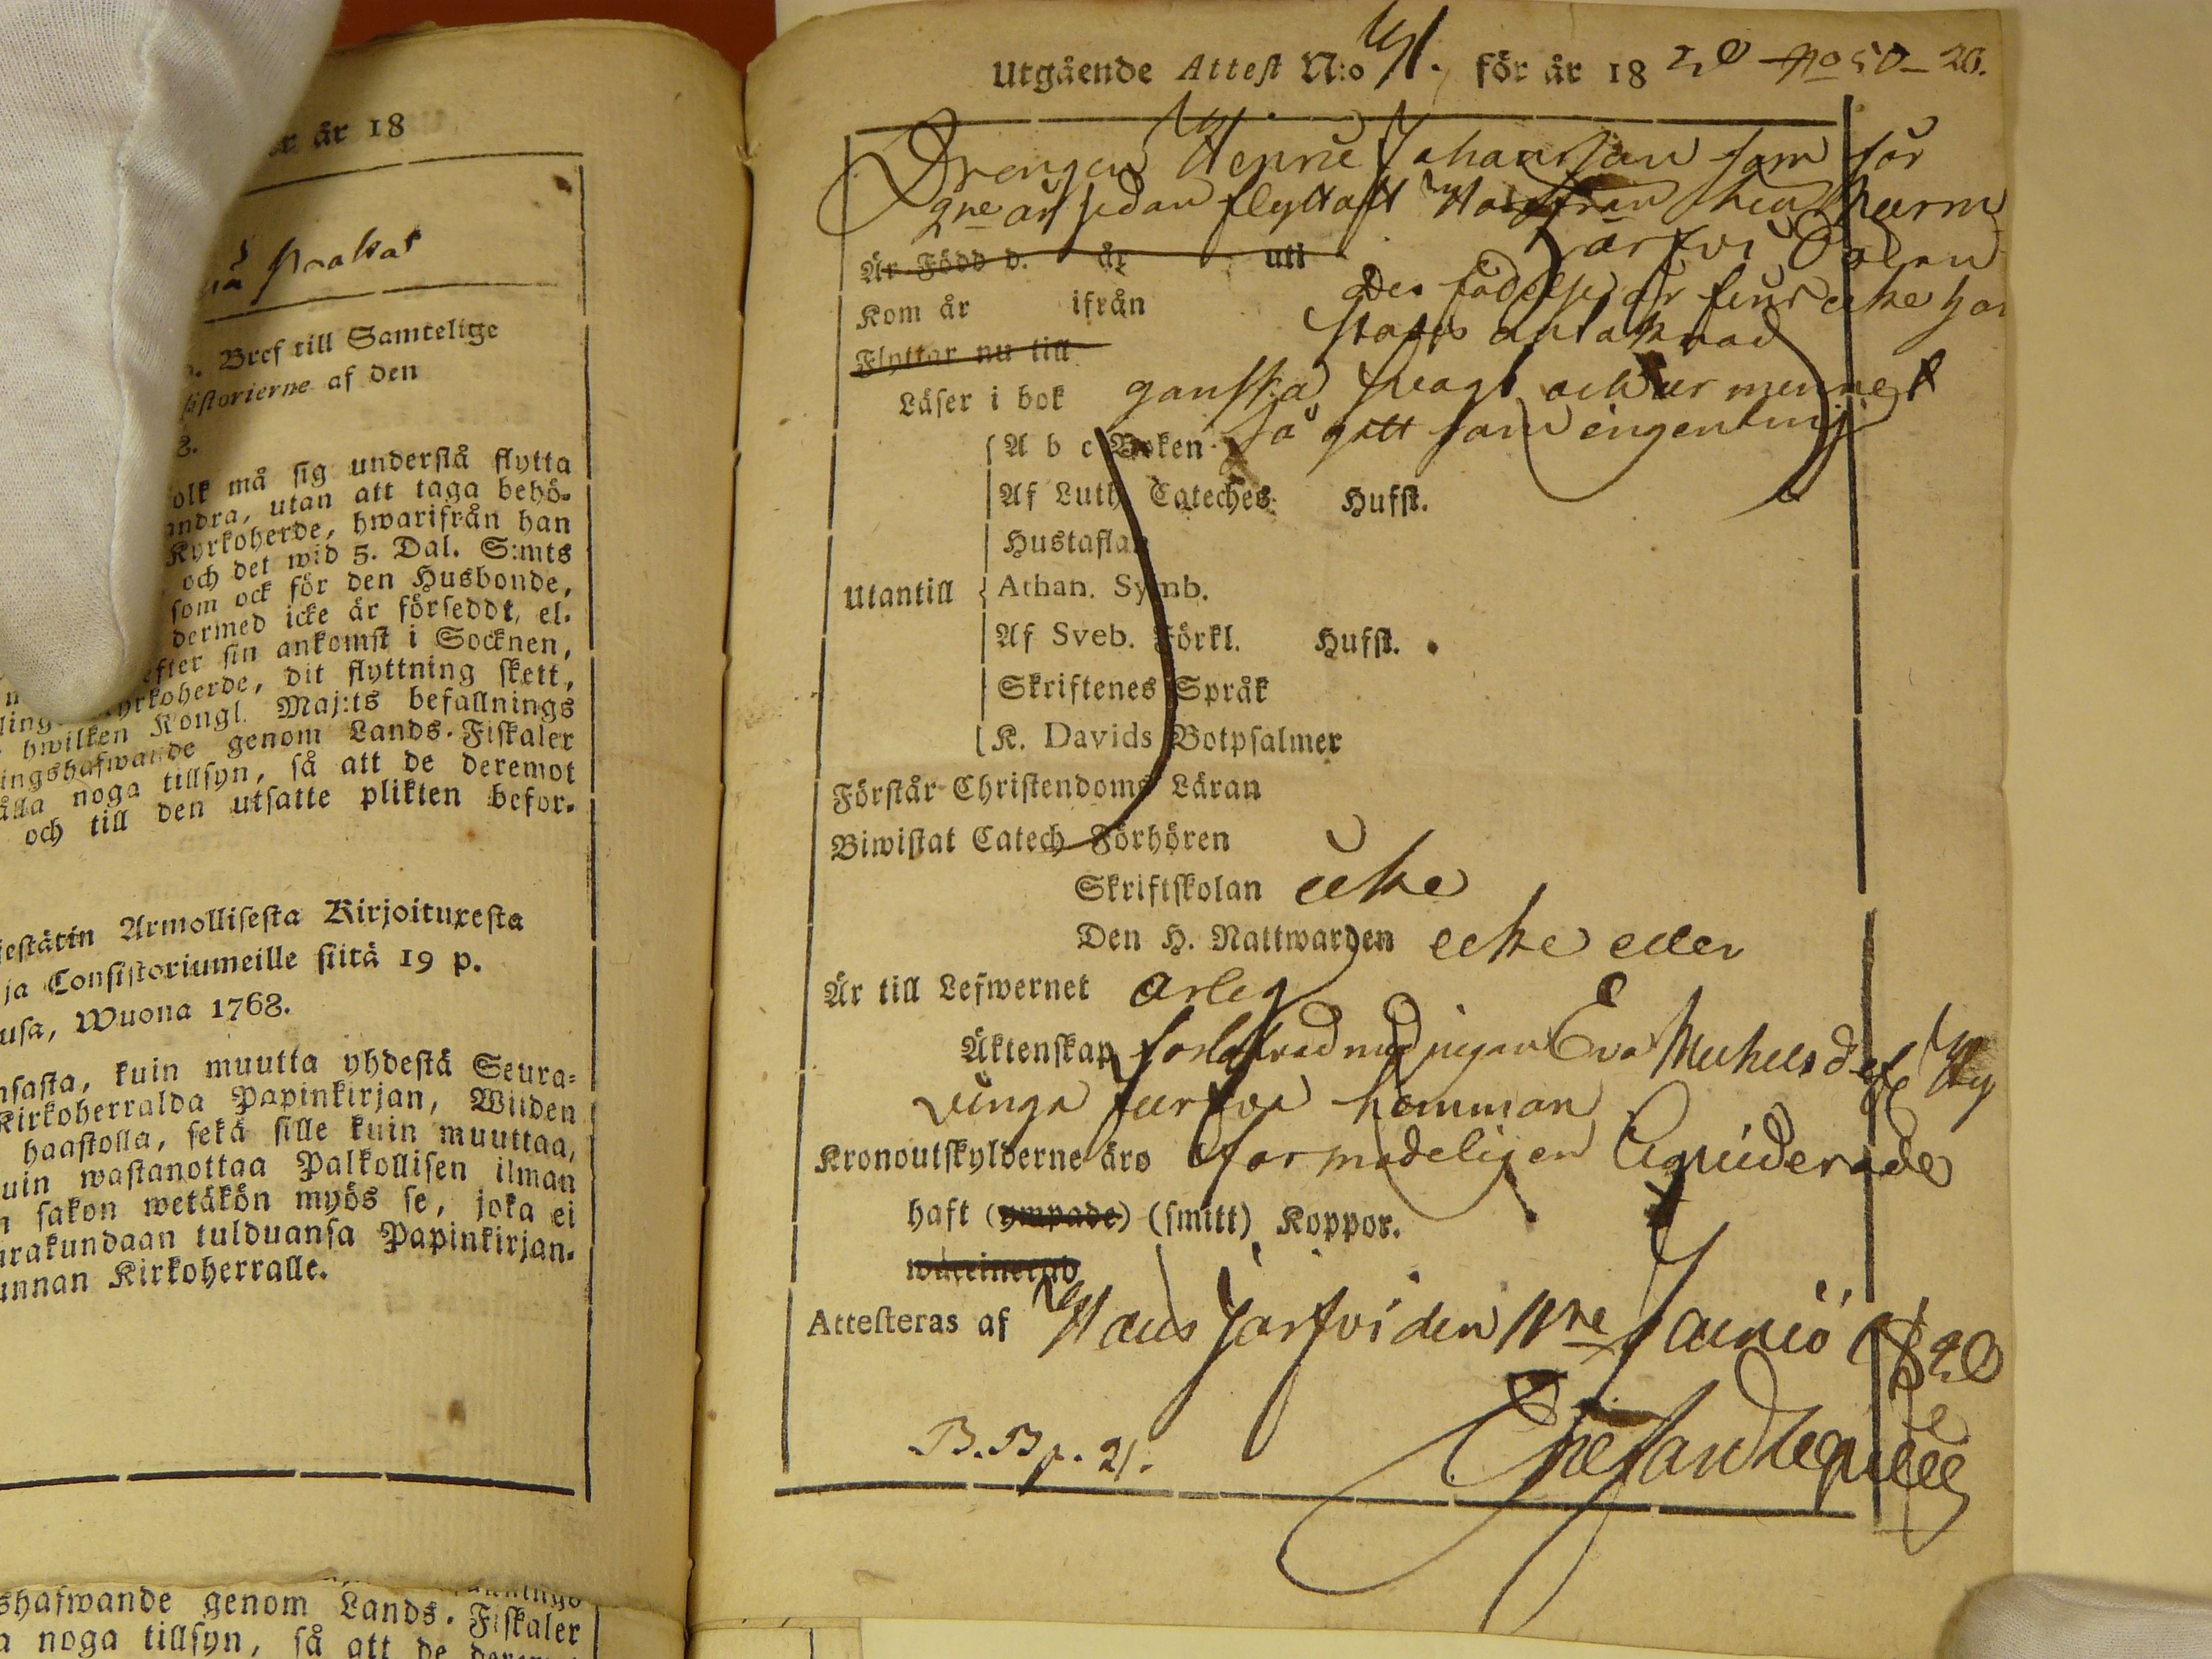 år 18
Bref till Samtelige
af den
8.
olk må sig understå flytta
andra, utan att taga behö-
Kyrkoherde, hwarifrån han
och det wid 5. Dal. S:mts
som ock för den Husbonde,
dermed icke är förseddt, el-
efter sin ankomst i Socknen,
yrkoherde, dit flyttning skett,
hwilken Kongl. Maj:ts befallnings
ingshafwande genom Lands-Fiskaler
ålla noga tillsyn, så att de deremot
och till den utsatte plikten befor-
jestätin Armollisesta Kirjoituxesta
ja Consistoriumeille siitä 19 p.
usa, Wuona 1768.
nsasta, kuin muutta yhdestä Seura-
Kirkoherralda Papinkirjan, Wiiden
haastolla, sekä sille kuin muuttaa,
uin wastanottaa Palkollisen ilman
n sakon wetäkön myös se, joka ei
urakundaan tulduansa Papinkirjan-
unnan Kirkoherralle.
shafwande genom Lands-Fiskaler
a noga tillsyn, så att de
Utgående Attest N:o för år 18 20 No 50–20.
Drengen Henric Johansson som för
2ne år sedan flyttat
Är Född d. år uti
Kom år ifrån
Des födelse år fins icke här
Flyttar nu till
stades antaknad
Läser i bok ganska swagt och ur minnet
A b c Boken så gott som ingenting
Af Luth. Cateches Hufst.
Hustaflan
Utantill Athan. Symb.
Af Sveb. Förkl. Hufst.
Skriftenes Språk
K. Davids Botpsalmer
Förstår Christendoms Läran
Biwistat Catech Förhören
Skriftskolan icke
Den H. Nattwarden icke eller
Är till Lefwernet ärlig
Äktenskap med pigan Eva Michelsd
hemman
Kronoutskylderne äro förmodeligen Liquiderade
haft (ympade) (smitt) Koppor.
waccinerad
Attesteras af Hausjärfvi den 11te Junii 1820
B.B p. 21.